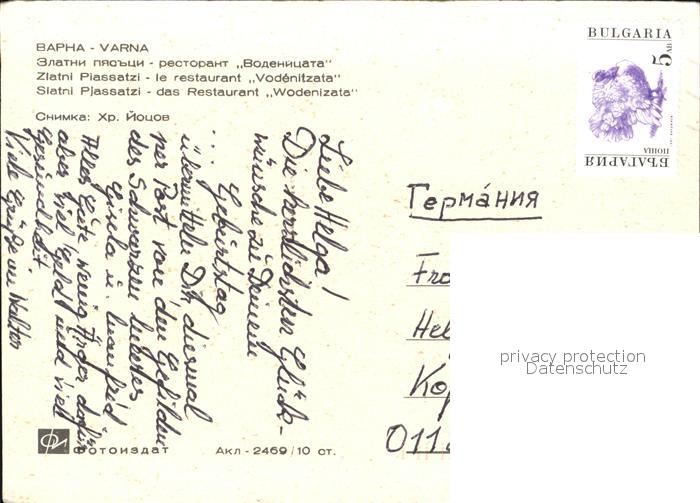 ВАРНА - VARNA
Златни пясъци - ресторант „Воденицата“
Zlatni Piassatzi - le restaurant „Vodénitzata“
Slatni Pjassatzi - das Restaurant „Wodenizata“
Снимка: Хр. Йоцов
BULGARIA
5
ПОЩА
БЪЛГАРИЯ
Liebe Helga!
Die herzlichsten Glück-
wünsche zu Deinem
.... Geburtstag
übermitteln Dir diesmal
per Post von den Gefilden
des Schwarzen Meeres
Gisela u. Manfred
Alles Gute, wenig Ärger dafür
aber viel Geld und viel
Gesundheit
Viele Grüße an Walter
Германия
Fra
Hel
Kop
011
privacy protection
Datenschutz
Фотоиздат Акл - 2469/10 ст.